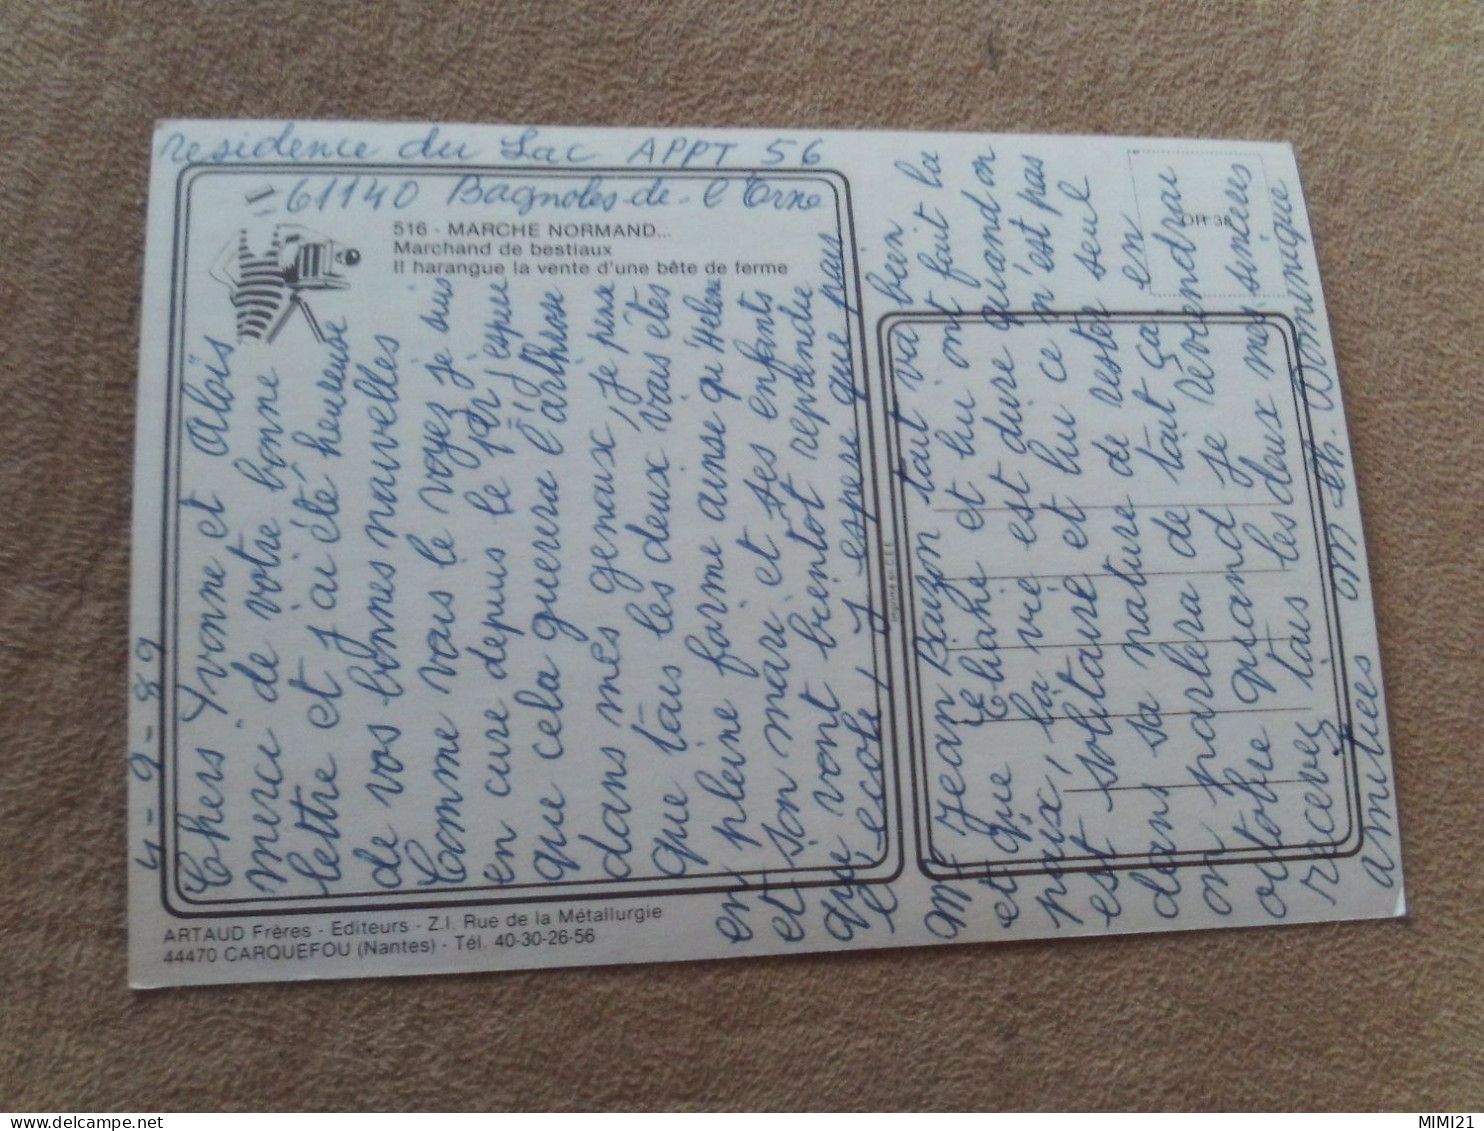 residence du Lac APPT 56
61140 Bagnoles-de-l'Orne
516 - MARCHE NORMAND...
Marchand de bestiaux
Il harangue la vente d'une bête de ferme
4-9-89
Chers Yvonne et Aloïs
merci de votre bonne
lettre et j'ai été heureuse
de vos bonnes nouvelles
Comme vous le voyez je suis
en cure depuis le 1er j'espere
que cela guerera l'arthrose
dans mes genoux, je pense
que tous les deux vous êtes
en pleine forme ainse qu'Helene
et son mari et ses enfants
qui vont bientot reprendre
l'ecole, j'espere que pour
Mr Jean Bouzon tout va bien
et que Elhane et lui ont fait la
paix, la vie est dure quand on
est solitaire et lui ce n'est pas
dans sa nature de rester seul
on parlera de tout ça en
octobre quand je reviendrai
recevez tous les deux mes sincères
amities Mth. Dominique
OR 38
Imprimé en C.E.E.
ARTAUD Frères - Editeurs - Z.I. Rue de la Métallurgie
44470 CARQUEFOU (Nantes) - Tél. 40-30-26-56
MIMI21